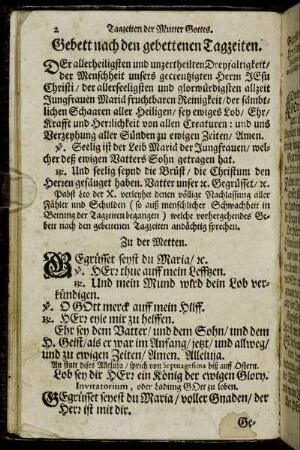 2 Tagzeiten der Mutter Gottes.
Gebett nach den gebettenen Tagzeiten.
DEr allerheiligsten und unzertheilten Dreyfaltigkeit/
der Menschheit unsers gecreutzigten Herrn JEsu
Christi/ der allerseeligsten und glorwürdigsten allzeit
Jungfrauen Mariä fruchtbaren Reinigkeit/ der sämbt-
lichen Schaaren aller Heiligen/ sey ewiges Lob/ Ehr/
Krafft und Herrlichkeit von allen Creaturen: und uns
Verzeyhung aller Sünden zu ewigen Zeiten/ Amen.
℣. Seelig ist der Leib Mariä der Jungfrauen/ wel-
cher deß ewigen Vatters Sohn getragen hat.
℟. Und seelig seynd die Brüst/ die Christum den
Herren gesäuget haben. Vatter unser ꝛc. Gegrüsset/ ꝛc.
Pabst Leo der X. verleyhet denen völlige Nachlassung aller
Fähler und Schulden (so auß menschlicher Schwachheit in
Bettung der Tagzeiten begangen) welche vorhergehendes Ge-
bett nach den gebettenen Tagzeiten andächtig sprechen.
Zu der Metten.
BEgrüsset seyst du Maria/ ꝛc.
℣. HErr thue auff mein Leffzen.
℟. Und mein Mund wird dein Lob ver-
kündigen.
℣. O GOtt merck auff mein Hilff.
℟. HErr eyle mir zu helffen.
Ehr sey dem Vatter/ und dem Sohn/ und dem
H. Geist/ als er war im Anfang/ jetzt/ und allweg/
und zu ewigen Zeiten/ Amen. Alleluja.
An statt dises Alleluja/ sprich von Septuagesima biß auff Ostern.
Lob sey dir HErr ein König der ewigen Glory.
Invitatorium, oder Ladung GOtt zu loben.
GEgrüsset seyest du Maria/ voller Gnaden/ der
Herr ist mit dir.
Ge-